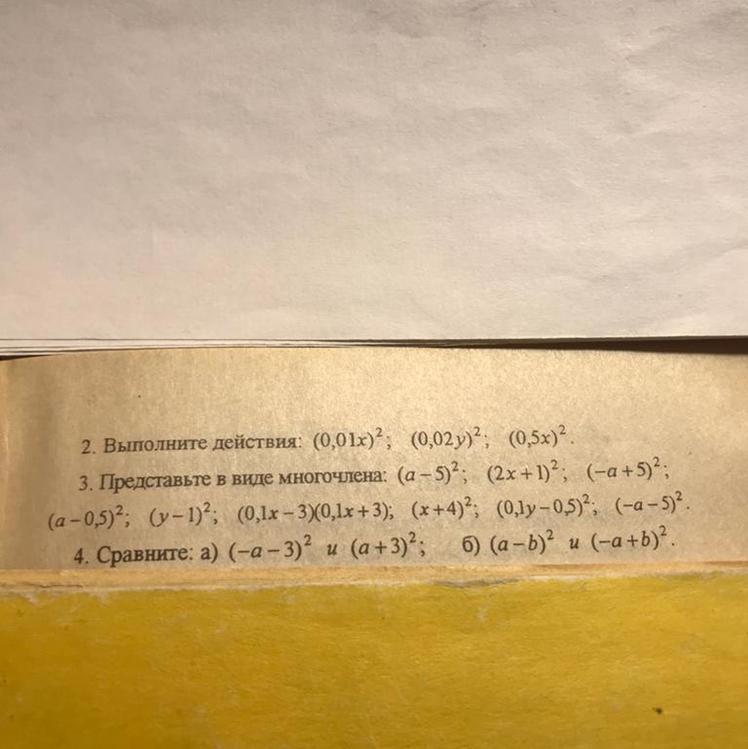 2. Выполните действия: (0,01x)²; (0,02y)²; (0,5x)².
3. Представьте в виде многочлена: (a−5)²; (2x+1)²; (−a+5)²;
(a−0,5)²; (y−1)²; (0,1x−3)(0,1x+3); (x+4)²; (0,1y−0,5)²; (−a−5)².
4. Сравните: а) (−a−3)² и (a+3)²; б) (a−b)² и (−a+b)².